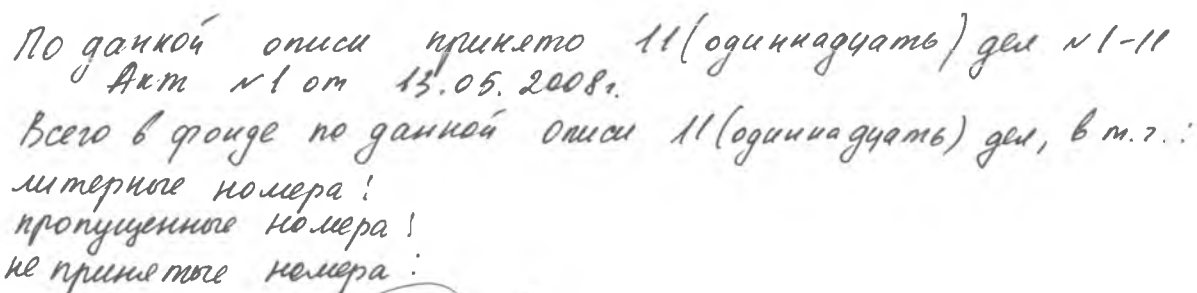 По данной описи принято 11(одиннадцать) дел №1-11
Акт №1 от 13.05.2008г.
Всего в фонде по данной описи 11(одиннадцать) дел, в т.ч.:
литерные номера:
пропущенные номера:
не принятые номера: